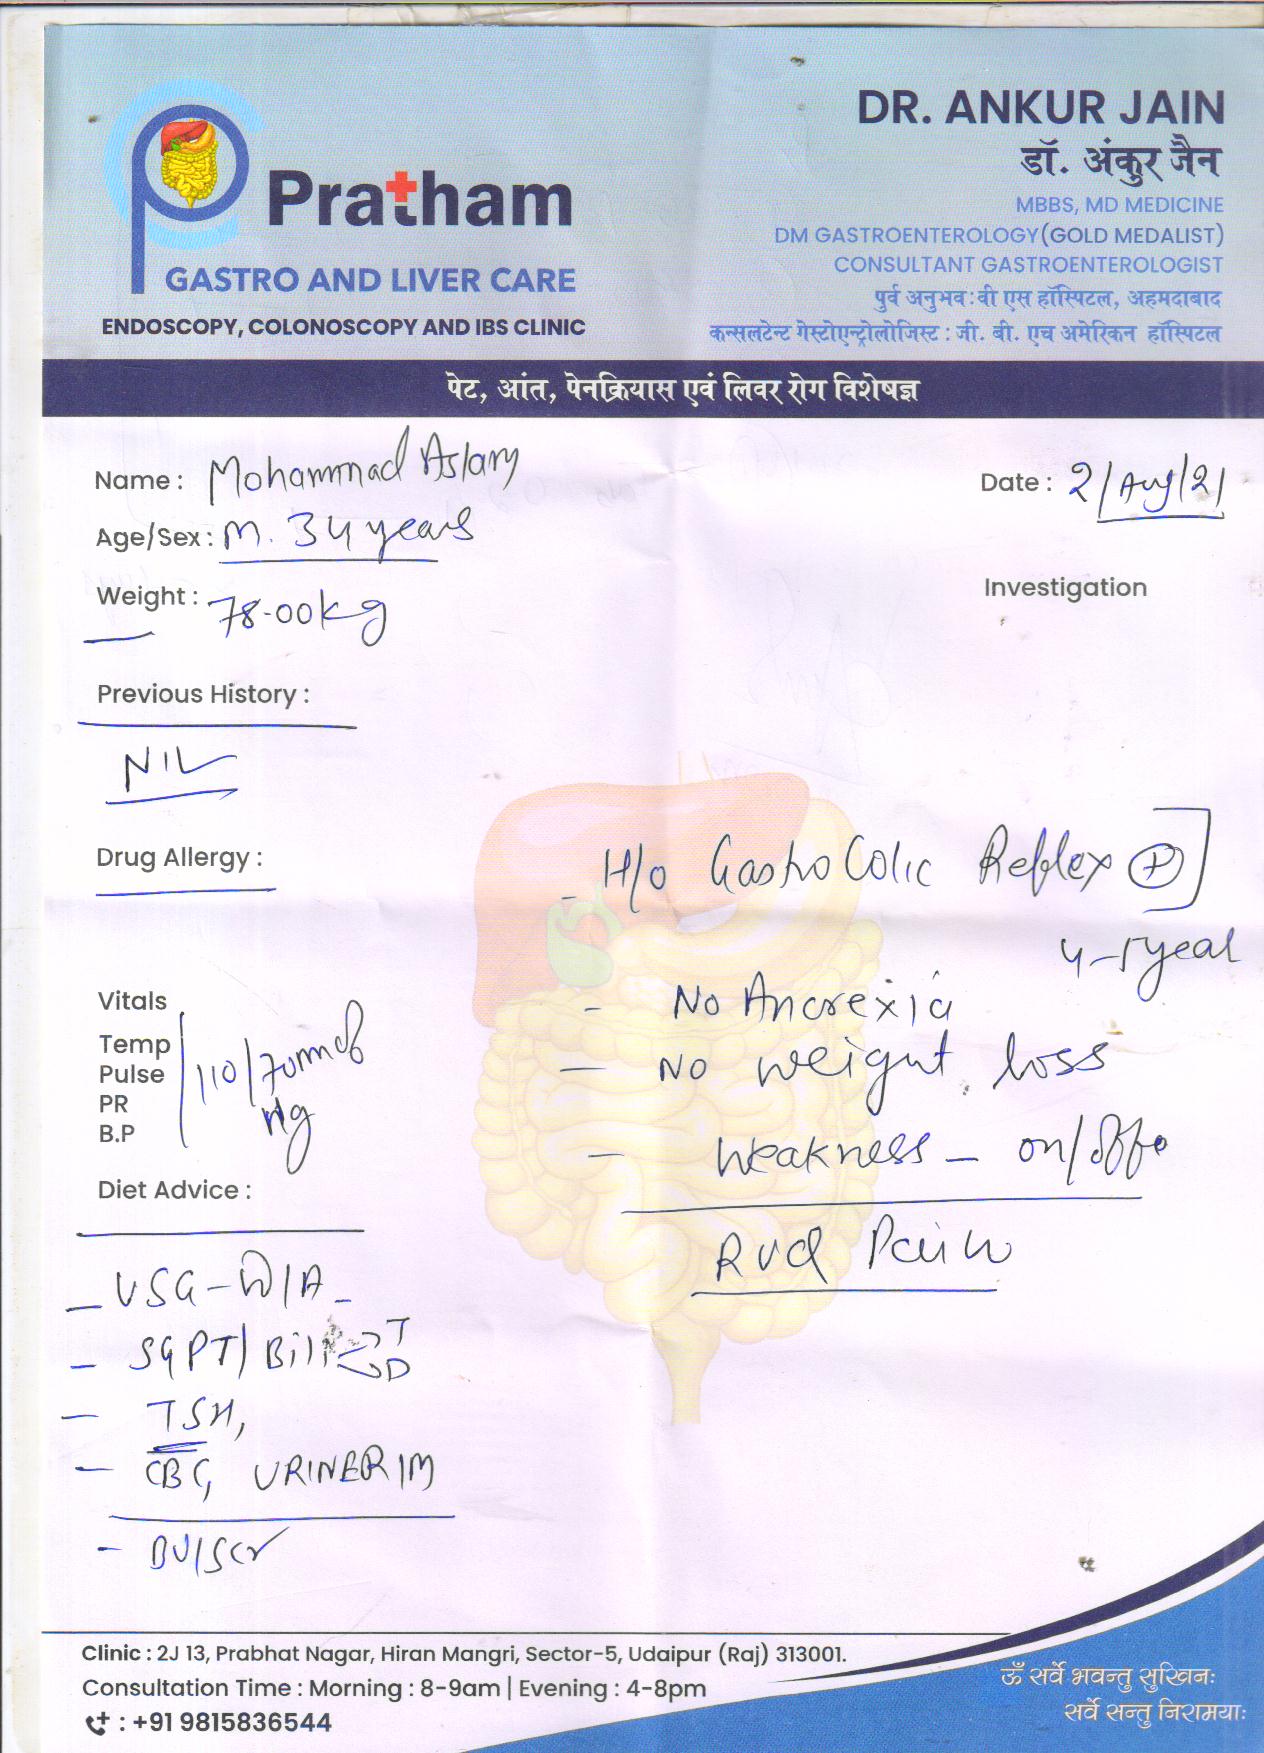 Pratham
GASTRO AND LIVER CARE
ENDOSCOPY, COLONOSCOPY AND IBS CLINIC
DR. ANKUR JAIN
डॉ. अंकुर जैन
MBBS, MD MEDICINE
DM GASTROENTEROLOGY(GOLD MEDALIST)
CONSULTANT GASTROENTEROLOGIST
पुर्व अनुभव:वी एस हॉस्पिटल, अहमदाबाद
कन्सलटेन्ट गेस्टोएन्ट्रोलोजिस्ट : जी. बी. एच अमेरिकन हॉस्पिटल
पेट, आंत, पेनक्रियास एवं लिवर रोग विशेषज्ञ
Name : Mohammad Aslam
Date : 2/Aug/21
Age/Sex : M. 34 years
Weight : 78.00kg
Investigation
Previous History :
NIL
Drug Allergy :
- H/o Gastro Colic Reflex (+)
4-5 year
- No Anorexia
- No weight loss
- Weakness - on/off
Pain
Vitals
Temp
Pulse
PR
B.P
110/70mm of
Hg
Diet Advice :
- USG-W/A -
- SGPT/Bili T
D
- TSH,
- CBC, URINE R/M
- BU/SCr
Clinic : 2J 13, Prabhat Nagar, Hiran Mangri, Sector-5, Udaipur (Raj) 313001.
Consultation Time : Morning : 8-9am | Evening : 4-8pm
: +91 9815836544
ॐ सर्वे भवन्तु सुखिनः
सर्वे सन्तु निरामयाः